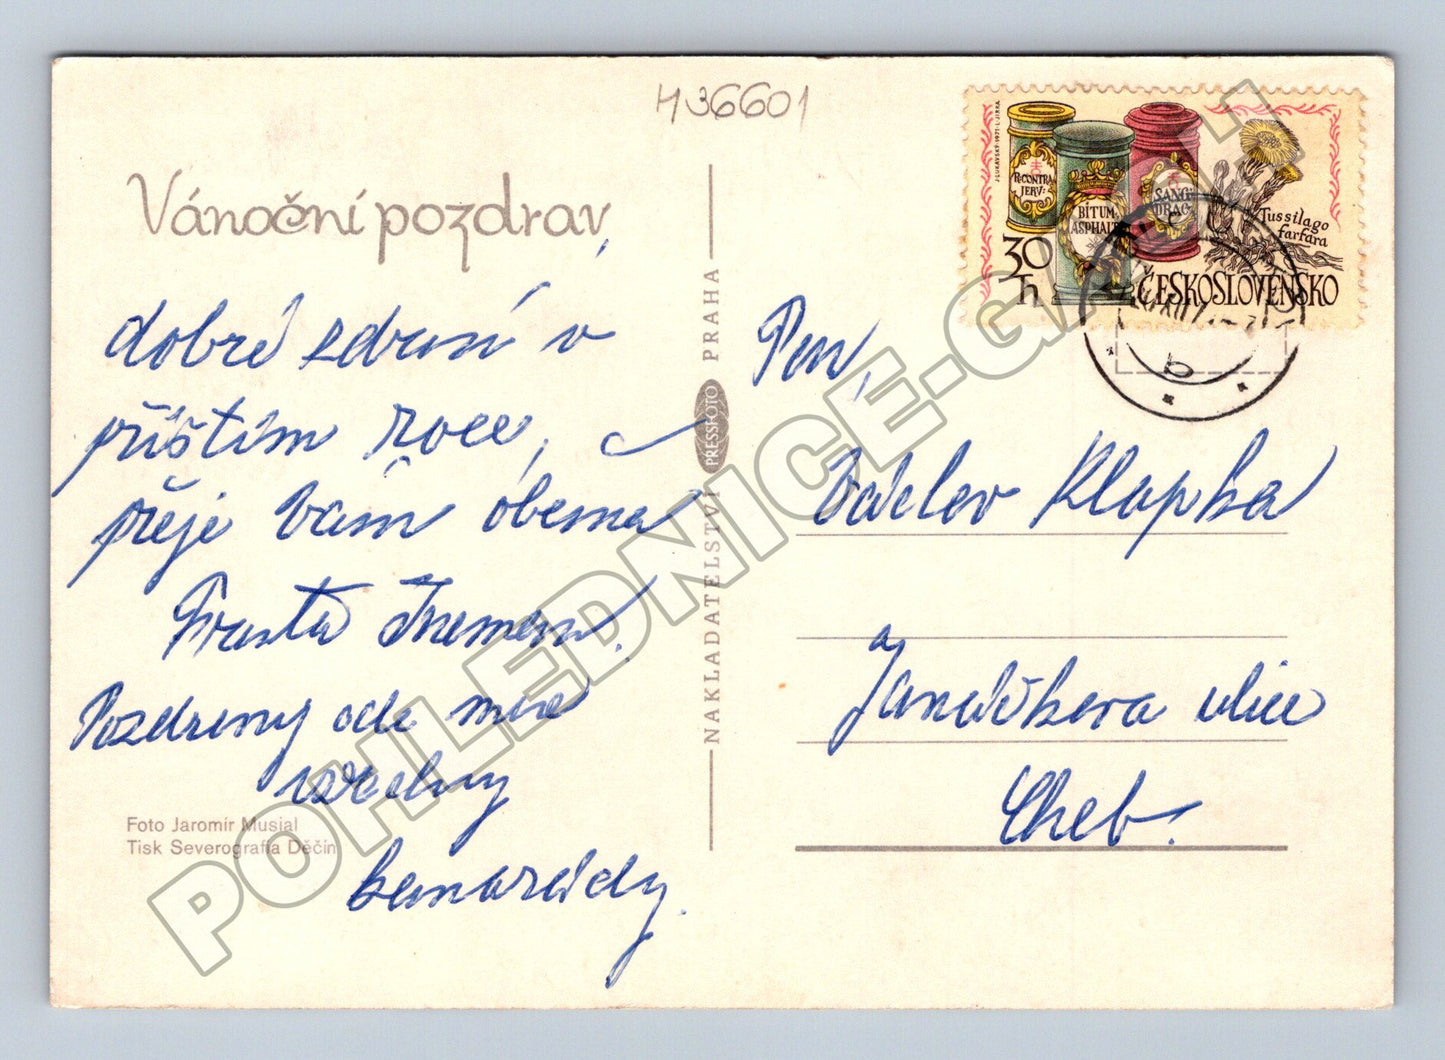 H36601
Vánoční pozdrav,
dobré zdraví v
příštím roce,
přeje Vám oběma
Franta
Pozdravuj ode mne
všechny
kamarády.
Foto Jaromír Musial
Tisk Severografia Děčín
NAKLADATELSTVÍ PRESSFOTO PRAHA
J. LUKAVSKÝ · 1971 · L. JIRKA
R: CONTRA
JERV:
BITUM:
ASPHALT
SANG:
DRAC:
Tussilago
farfara
30
h
ČESKOSLOVENSKO
b
Pan,
Václav Klapka
Janáčkova ulice
Cheb.
POHLEDNICE-GARAH